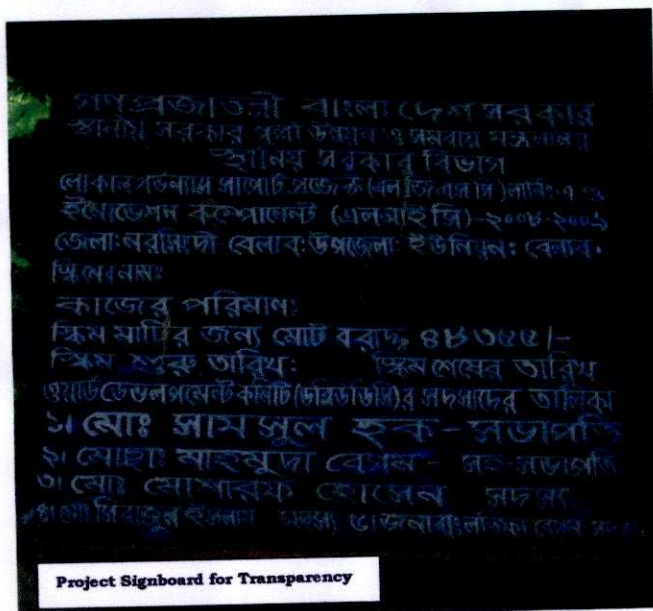 গণপ্রজাতন্ত্রী বাংলাদেশ সরকার
স্থানীয় সরকার পল্লী উন্নয়ন ও সমবায় মন্ত্রনালয়
স্থানিয় সরকার বিভাগ
লোকাল গভর্ন্যান্স সাপোর্ট প্রজেক্ট (এল জি এস পি) লার্নিং এন্ড
ইনোভেশন কম্পোনেন্ট (এল আই সি)-২০০৮-২০০৯
জেলা: নরসিংদী বেলাব: উপজেলা: ইউনিয়ন: বেলাব
স্কিমের নাম:
কাজের পরিমান:
স্কিম মাটির জন্য মোট বরাদ্দ ৪৮৩৫৫/-
স্কিম শুরু তারিখ: স্কিম শেষের তারিখ
ওয়ার্ড ডেভলপমেন্ট কমিটি (ডব্লিউডিসি)র সদস্যদের তালিকা
১। মোঃ সামসুল হক - সভাপতি
২। মোছাঃ মাহমুদা বেগম - সহ-সভাপতি
৩। মোঃ মোশারফ হোসেন সদস্য
৪। মোঃ সিরাজুল ইসলাম সদস্য
Project Signboard for Transparency